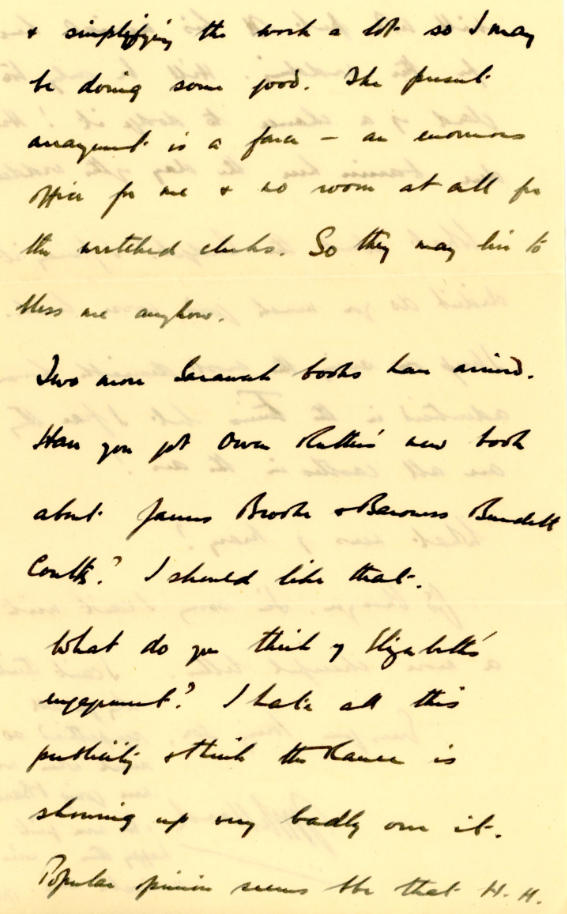 & simplifying the work a lot so I may
be doing some good. The present
arrangement is a farce – an enormous
office for me & no room at all for
the wretched clerks. So they may live to
bless me anyhow.
Two more Sarawak books have arrived.
Have you got Owen Rutter's new book
about James Brooke & Baroness Burdett
Coutts? I should like that.
What do you think of Elizabeth's
engagement? I hate all this
publicity & think the Ranee is
showing up very badly over it.
Popular opinion seems to be that H. H.